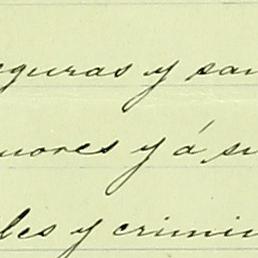 eguras y san
uores y á su
les y crimin